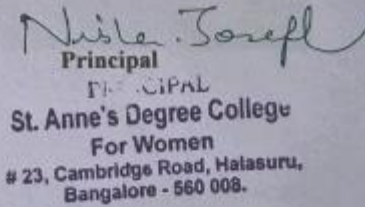 Joseph
Principal
PRINCIPAL
St. Anne's Degree College
For Women
# 23, Cambridge Road, Halasuru,
Bangalore - 560 008.